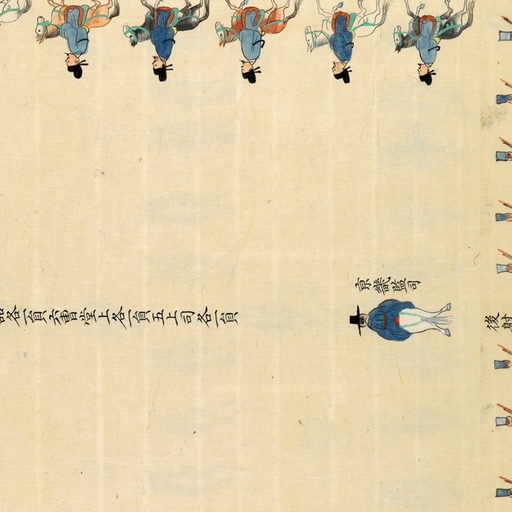 各一員六曹堂上各一員五上司各一員
京畿監司
後射